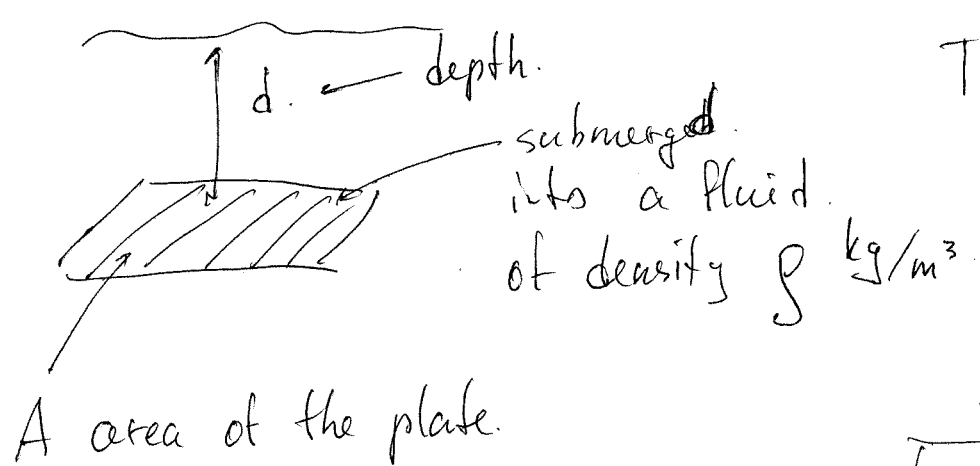 d. depth.
T
submerged.
into a fluid.
of density ρ kg/m³.
A area of the plate.